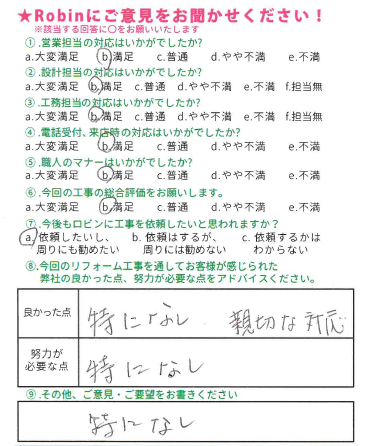 ★Robinにご意見をお聞かせください！
※該当する回答に〇をお願いいたします
①.営業担当の対応はいかがでしたか?
a.大変満足 b.満足 c.普通 d.やや不満 e.不満
②.設計担当の対応はいかがでしたか?
a.大変満足 b.満足 c.普通 d.やや不満 e.不満 f.担当無
③.工務担当の対応はいかがでしたか?
a.大変満足 b.満足 c.普通 d.やや不満 e.不満 f.担当無
④.電話受付、来店時の対応はいかがでしたか?
a.大変満足 b.満足 c.普通 d.やや不満 e.不満
⑤.職人のマナーはいかがでしたか?
a.大変満足 b.満足 c.普通 d.やや不満 e.不満
⑥.今回の工事の総合評価をお願いします。
a.大変満足 b.満足 c.普通 d.やや不満 e.不満
⑦.今後もロビンに工事を依頼したいと思われますか？
a.依頼したいし、 b. 依頼はするが、 c. 依頼するかは
周りにも勧めたい 周りには勧めない わからない
⑧.今回のリフォーム工事を通してお客様が感じられた
弊社の良かった点、努力が必要な点をアドバイスください。
良かった点 特になし 親切な対応
努力が
必要な点 特になし
⑨.その他、ご意見・ご要望をお書きください
特になし